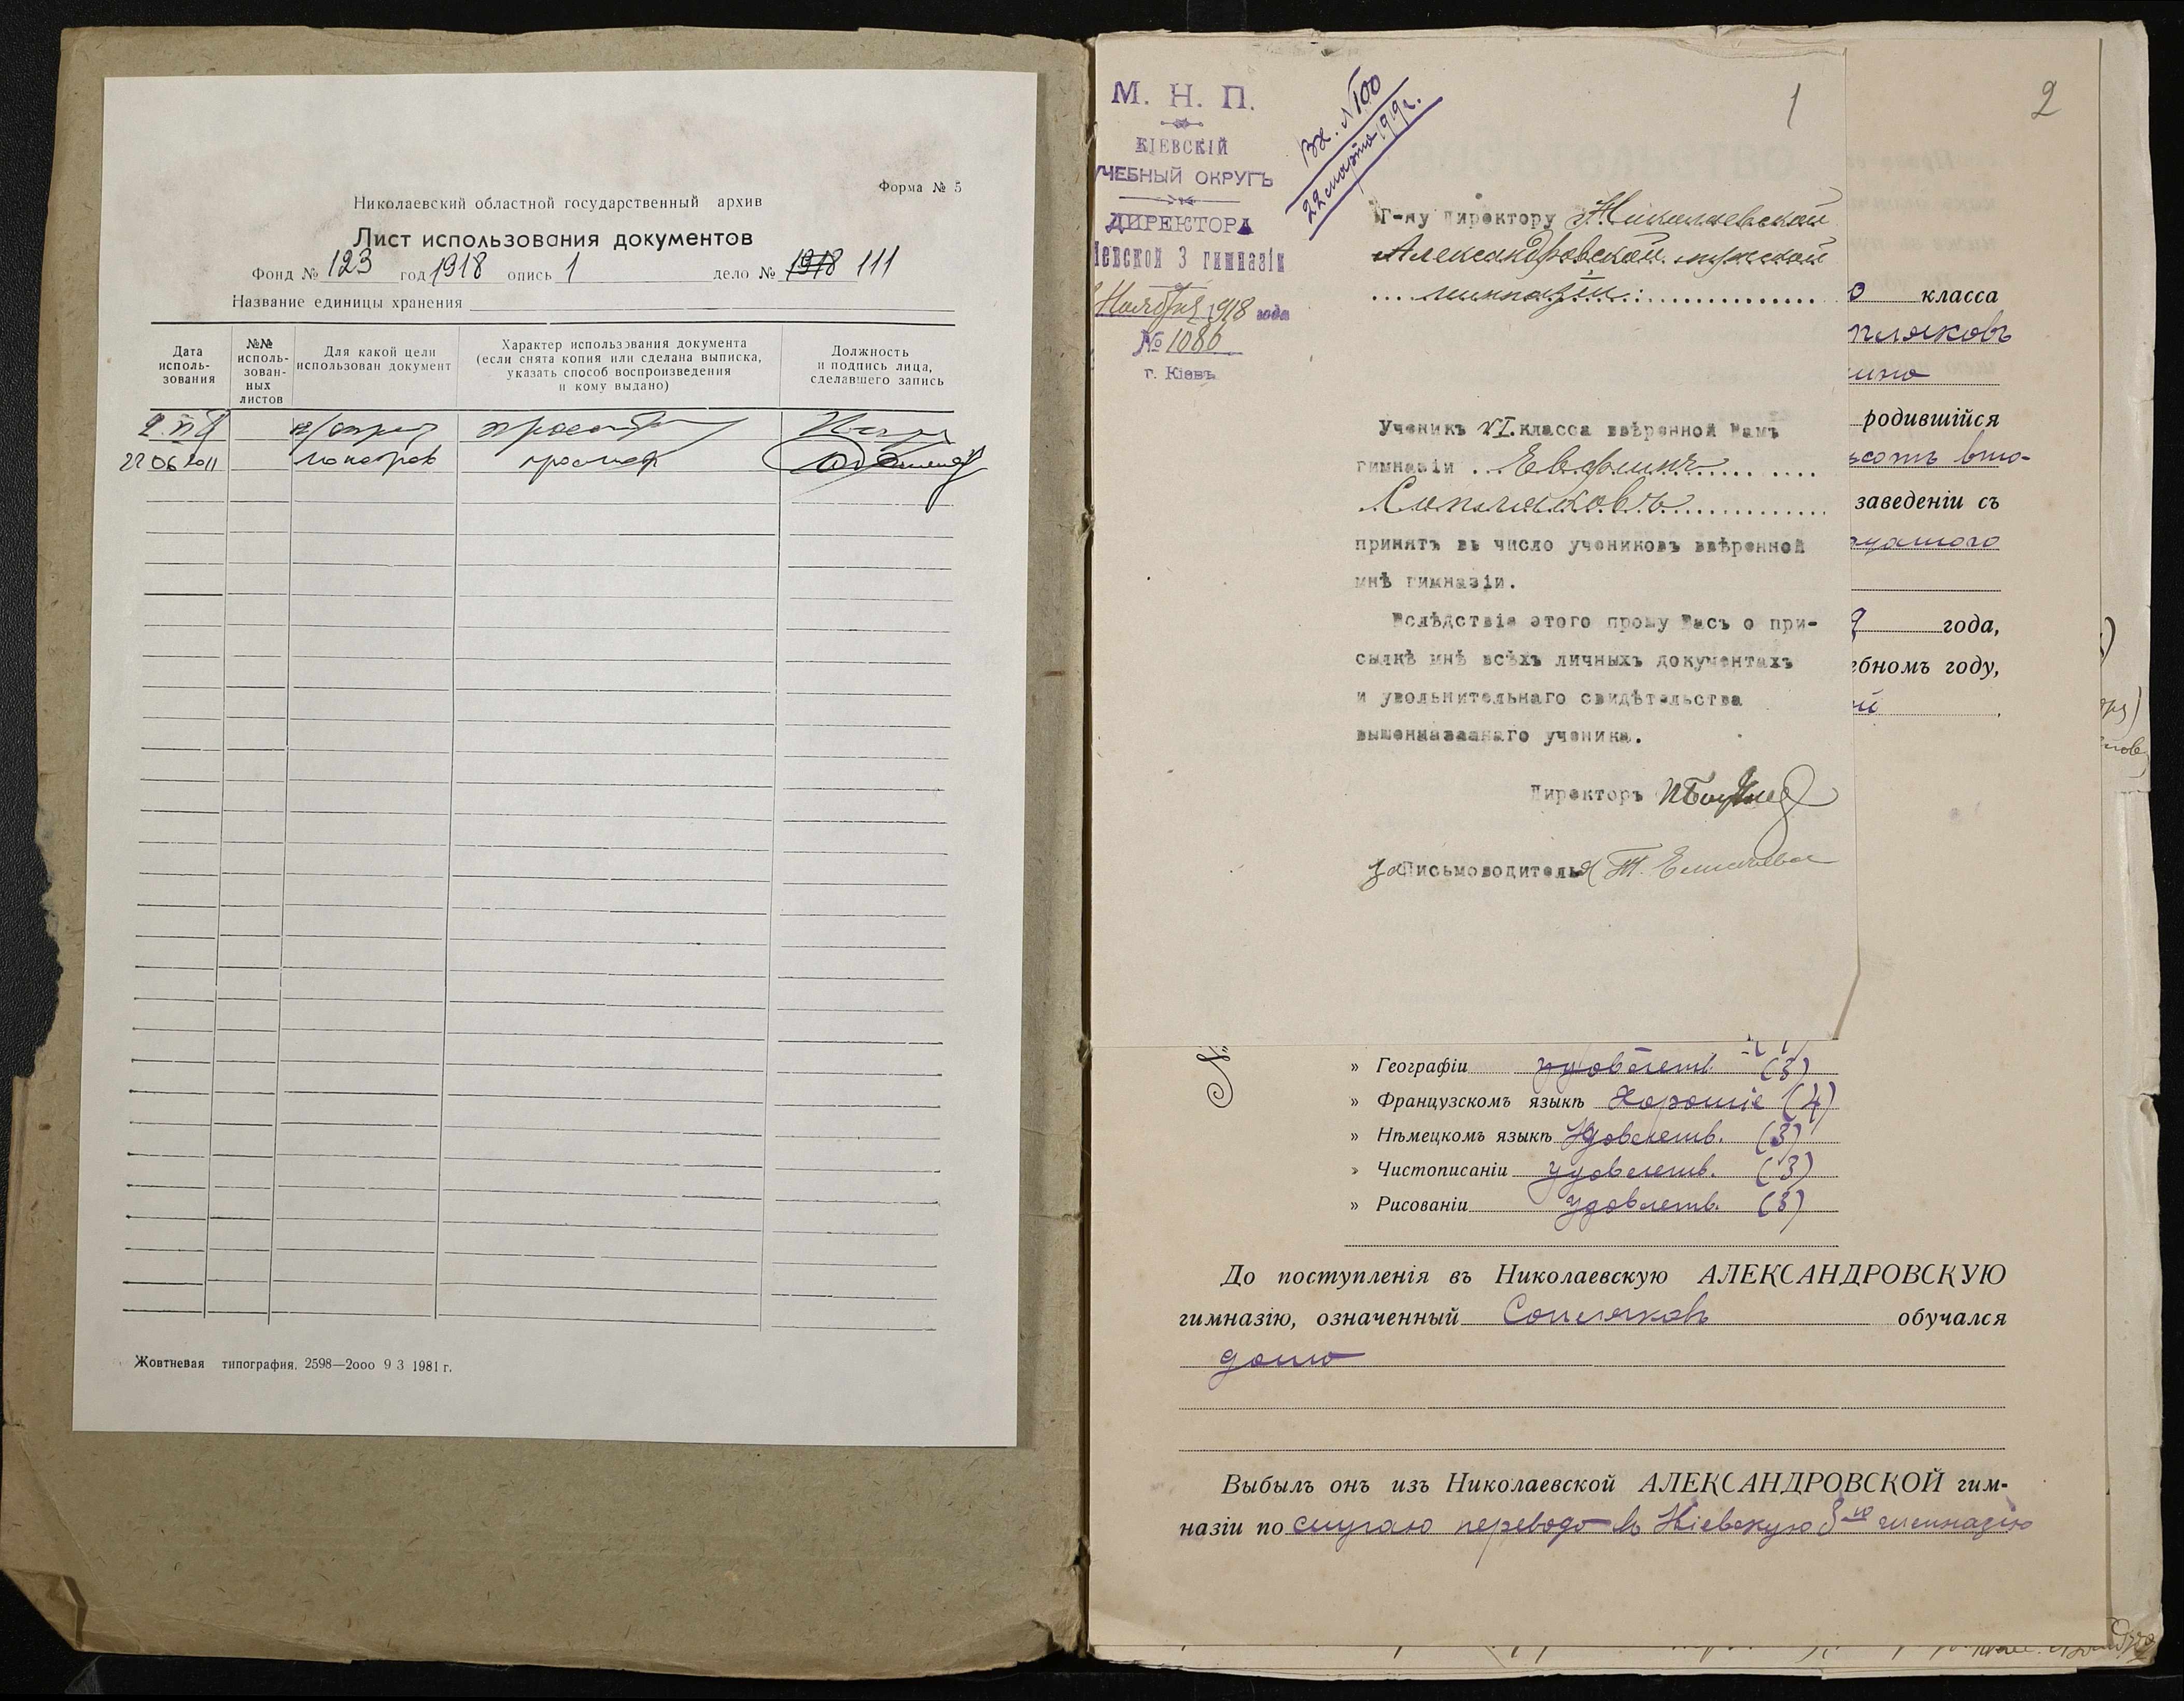 Форма № 5
Николаевский областной государственный архив
Лист использования документов
Фонд № 123 год 1918 опись 1 дело № 1918 111
Название единицы хранения
Дата исполь-зования
№№ исполь-зован-ных листов
Для какой цели использован документ
Характер использования документа (если снята копия или сделана выписка, указать способ воспроизведения и кому выдано)
Должность и подпись лица, сделавшего запись
22 06 2011
Жовтневая типография, 2598—2ооо 9 3 1981 г.
М. Н. П.
КІЕВСКІЙ
УЧЕБНЫЙ ОКРУГЪ
ДИРЕКТОРА
Кіевской 3 гимназіи
Ноября 1918 года
№ 1086
г. Кіевъ
Вх. № 100
22 марта 1919 г.
1
2
Г-ну Директору Николаевской
Александровской мужской
гимназіи
Ученикъ VI класса ввѣренной Вамъ
гимназіи Евфимъ
Сопляковъ
принятъ въ число учениковъ ввѣренной
мнѣ гимназіи.
Вслѣдствіе этого прошу Васъ о при-
сылкѣ мнѣ всѣхъ личныхъ документахъ
и увольнительнаго свидѣтельства
вышеназваннаго ученика.
Директоръ
за Письмоводителя
класса
пляковъ
родившійся
сотъ вто-
заведеніи съ
9 года,
ебномъ году,
ой
» Географіи удовлетв. (3)
» Французскомъ языкѣ Хорошіе (4)
» Нѣмецкомъ языкѣ Удовлетв. (3)
» Чистописаніи удовлетв. (3)
» Рисованіи Удовлетв. (3)
До поступленія въ Николаевскую АЛЕКСАНДРОВСКУЮ
гимназію, означенный Сопляковъ обучался
дома
Выбылъ онъ изъ Николаевской АЛЕКСАНДРОВСКОЙ гим-
назіи по случаю перевода въ Кіевскую 3-ю гимназію